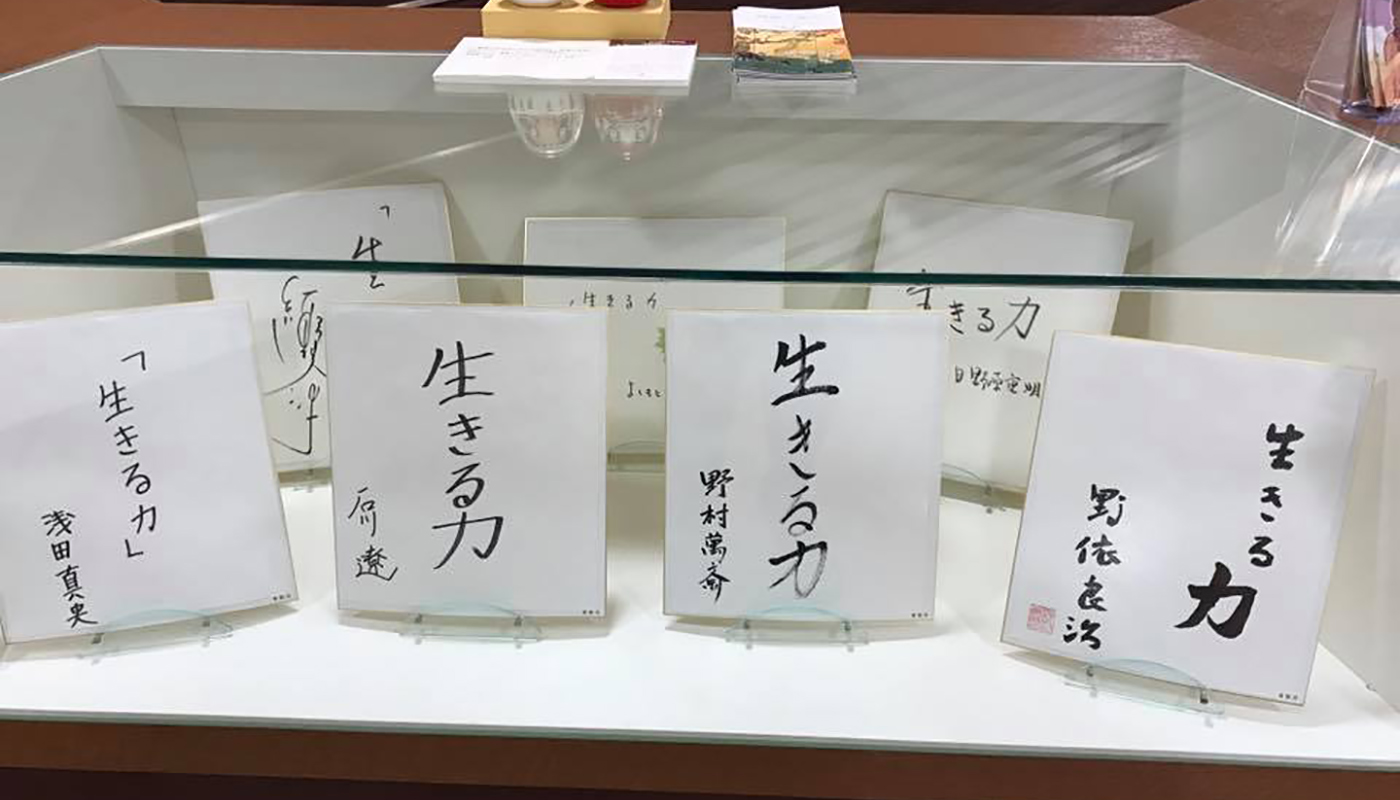 「生
生きる力
生きる力
日野原重明
「生きる力」
浅田真央
生きる力
石川遼
生きる力
野村萬斎
生きる力
野依良治